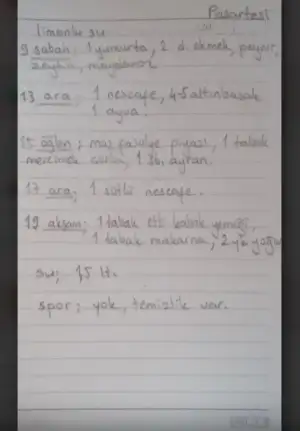 Pazartesi
limonlu su
9 sabah: 1 yumurta, 2 d. ekmek, peynir,
zeytin, maydanoz
13 ara: 1 nescafe, 4-5 altınbaşak
1 ayva.
15 öğlen; maş fasulye piyazı, 1 tabak
mercimek çorba, 1 b. ayran.
17 ara; 1 sütlü nescafe.
19 akşam; 1 tabak etli kabak yemeği,
1 tabak makarna, 2 yk yoğu
su; 1,5 lt.
spor; yok, temizlik var.